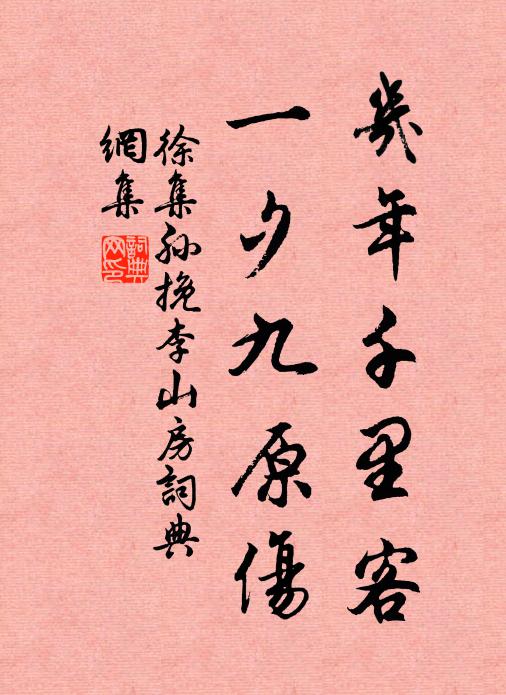 幾年千里客
一夕九原傷
徐集孙挽李山房詞典
網集
詞典
网印